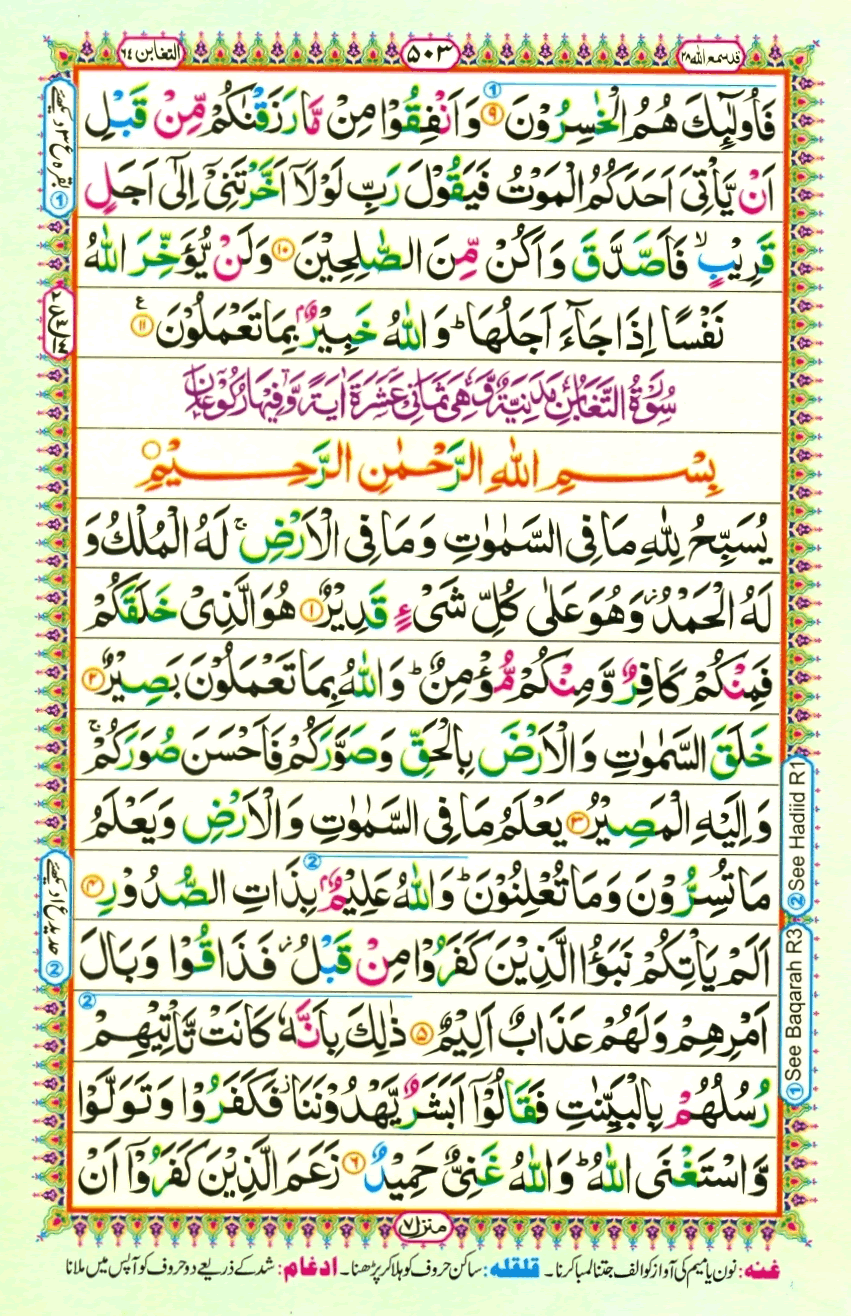 قدسمع الله ۲۸
۵۰۳
التغابن ۶۴
فَاُولٰٓئِكَ هُمُ الْخٰسِرُوْنَ ۹ وَاَنْفِقُوْا مِنْ مَّا رَزَقْنٰكُمْ مِّنْ قَبْلِ
اَنْ يَّاْتِىَ اَحَدَكُمُ الْمَوْتُ فَيَقُوْلَ رَبِّ لَوْلَاۤ اَخَّرْتَنِىْۤ اِلٰٓى اَجَلٍ
قَرِيْبٍ ۙ فَاَصَّدَّقَ وَاَكُنْ مِّنَ الصّٰلِحِيْنَ ۱۰ وَلَنْ يُّؤَخِّرَ اللّٰهُ
نَفْسًا اِذَا جَآءَ اَجَلُهَا ؕ وَاللّٰهُ خَبِيْرٌۢ بِمَا تَعْمَلُوْنَ ۱۱ ع
سُوْرَةُ التَّغَابُنِ مَدَنِيَّةٌ وَّهِىَ ثَمَانِىَ عَشَرَةَ اٰيَةً وَّفِيْهَا رُكُوْعَانِ
بِسْمِ اللّٰهِ الرَّحْمٰنِ الرَّحِيْمِ
يُسَبِّحُ لِلّٰهِ مَا فِى السَّمٰوٰتِ وَمَا فِى الْاَرْضِ ۚ لَهُ الْمُلْكُ وَ
لَهُ الْحَمْدُ ز وَهُوَ عَلٰى كُلِّ شَىْءٍ قَدِيْرٌ ۱ هُوَ الَّذِىْ خَلَقَكُمْ
فَمِنْكُمْ كَافِرٌ وَّمِنْكُمْ مُّؤْمِنٌ ؕ وَاللّٰهُ بِمَا تَعْمَلُوْنَ بَصِيْرٌ ۲
خَلَقَ السَّمٰوٰتِ وَالْاَرْضَ بِالْحَقِّ وَصَوَّرَكُمْ فَاَحْسَنَ صُوَرَكُمْ ۚ
وَاِلَيْهِ الْمَصِيْرُ ۳ يَعْلَمُ مَا فِى السَّمٰوٰتِ وَالْاَرْضِ وَيَعْلَمُ
مَا تُسِرُّوْنَ وَمَا تُعْلِنُوْنَ ؕ وَاللّٰهُ عَلِيْمٌۢ بِذَاتِ الصُّدُوْرِ ۴
اَلَمْ يَاْتِكُمْ نَبَؤُا الَّذِيْنَ كَفَرُوْا مِنْ قَبْلُ ز فَذَاقُوْا وَبَالَ
اَمْرِهِمْ وَلَهُمْ عَذَابٌ اَلِيْمٌ ۵ ذٰلِكَ بِاَنَّهٗ كَانَتْ تَّاْتِيْهِمْ
رُسُلُهُمْ بِالْبَيِّنٰتِ فَقَالُوْۤا اَبَشَرٌ يَّهْدُوْنَنَا ز فَكَفَرُوْا وَتَوَلَّوْا
وَّاسْتَغْنَى اللّٰهُ ؕ وَاللّٰهُ غَنِىٌّ حَمِيْدٌ ۶ زَعَمَ الَّذِيْنَ كَفَرُوْۤا اَنْ
منزل ۷
غنه: نون یا میم کی آواز کو الف جتنا لمبا کرنا۔ قلقله: ساکن حروف کو ہلا کر پڑھنا۔ ادغام: شد کے ذریعے دو حروف کو آپس میں ملانا
② See Hadiid R1
① See Baqarah R3